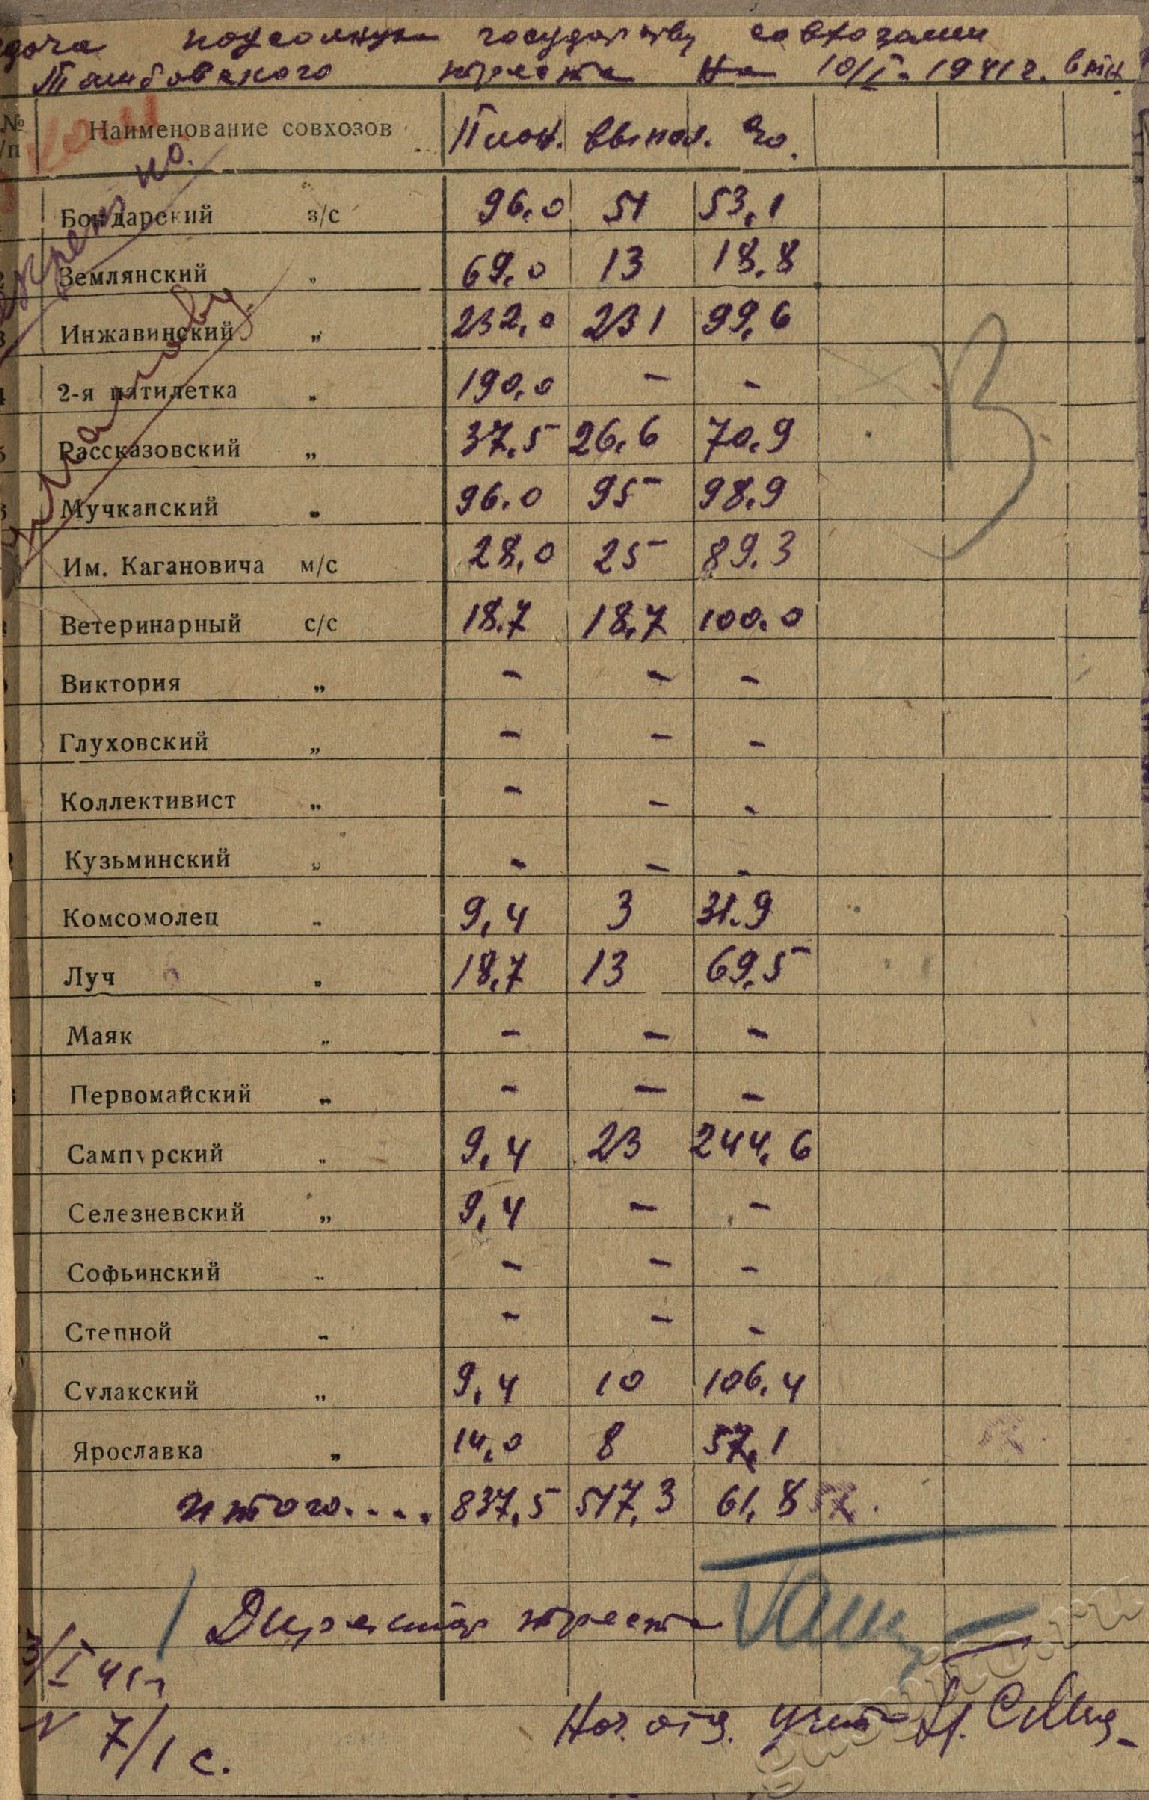 дача подсолнуха государству совхозами
Тамбовского треста на 10/I-1941г. в тн.
№ п/п Наименование совхозов План. выпол. %.
Бондарский з/с 96,0 51 53,1
Землянский „ 69,0 13 18,8
Инжавинский „ 232,0 231 99,6
2-я пятилетка „ 190,0 - -
Рассказовский „ 37,5 26,6 70,9
Мучкапский „ 96,0 95 98,9
Им. Кагановича м/с 28,0 25 89,3
Ветеринарный с/с 18,7 18,7 100,0
Виктория „ - - -
Глуховский „ - - -
Коллективист „ - - -
Кузьминский „ - - -
Комсомолец „ 9,4 3 31,9
Луч „ 18,7 13 69,5
Маяк „ - - -
Первомайский „ - - -
Сампурский „ 9,4 23 244,6
Селезневский „ 9,4 - -
Софьинский „ - - -
Степной „ - - -
Сулакский „ 9,4 10 106,4
Ярославка „ 14,0 8 57,1
Итого.... 837,5 517,3 61,8
Директор треста
/I 41г
N 7/1 с.
Нач. отд. учета